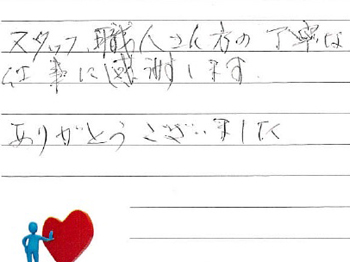 スタッフ、職人さん方の丁寧な
仕事に感謝します。
ありがとうございました